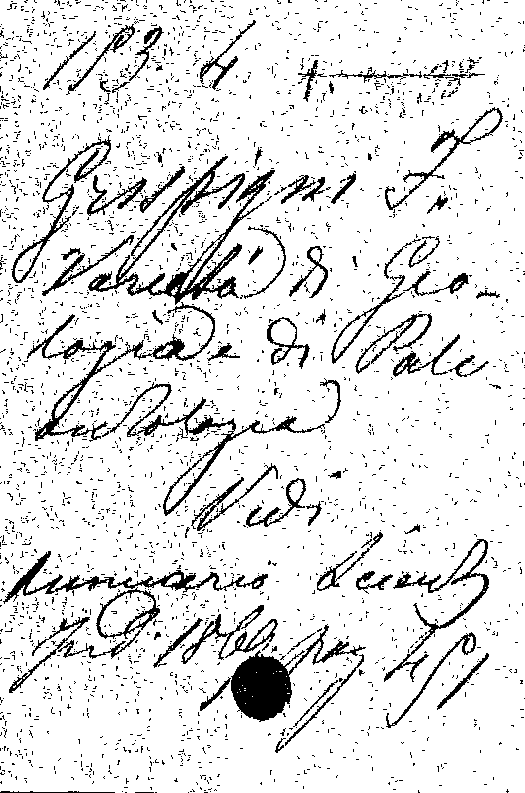 153. 4
Grispigni F.
Varietà di Geo-
logia e di Pale
ontologia
Vedi
Annuario Scient
Ind. 1869. pag. 451